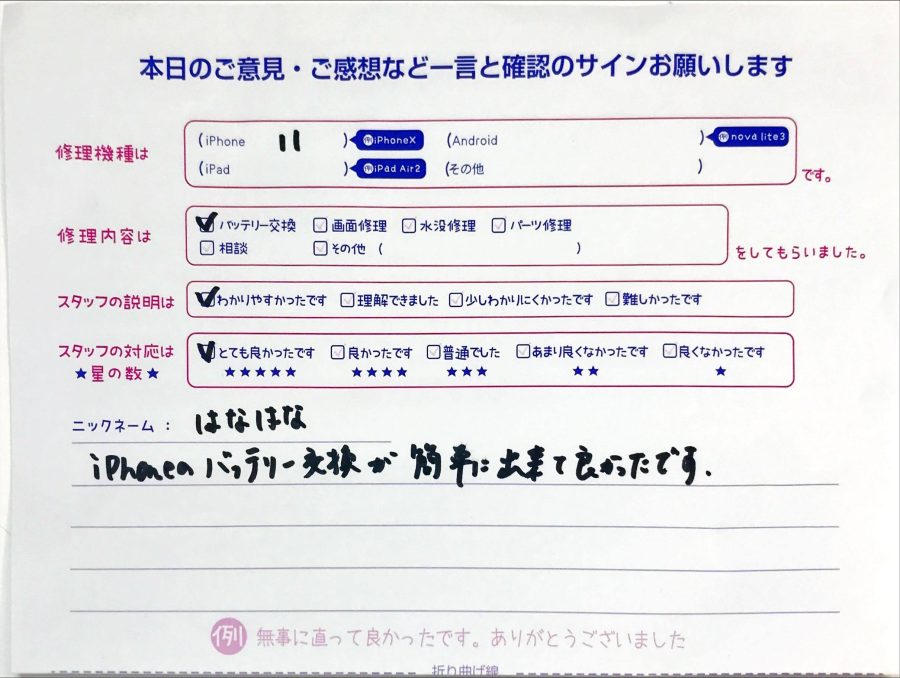 本日のご意見・ご感想など一言と確認のサインお願いします
修理機種は
(iPhone 11 ) 例iPhoneX (Android ) 例nova lite3
(iPad ) 例iPad Air2 (その他 )
です。
修理内容は
バッテリー交換 画面修理 水没修理 パーツ修理
相談 その他 ( )
をしてもらいました。
スタッフの説明は わかりやすかったです 理解できました 少しわかりにくかったです 難しかったです
スタッフの対応は とても良かったです 良かったです 普通でした あまり良くなかったです 良くなかったです
★星の数★ ★★★★★ ★★★★ ★★★ ★★ ★
ニックネーム: はなはな
iPhoneのバッテリー交換が簡単に出来て良かったです.
例 無事に直って良かったです。ありがとうございました
折り曲げ線